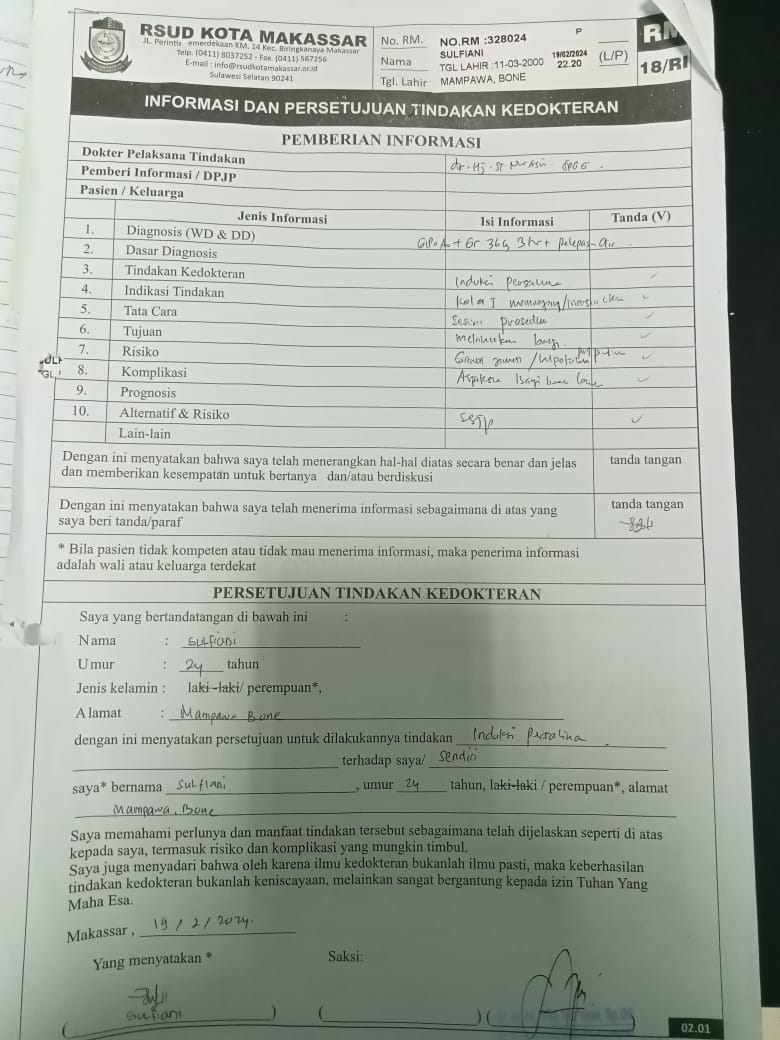 RSUD KOTA MAKASSAR
JL. Perintis emerdekaan KM. 14 Kec. Biringkanaya Makassar
Telp. (0411) 8037252 - Fax. (0411) 587256
E-mail : info@rsudkotamakassar.or.id
Sulawesi Selatan 90241
No. RM. NO.RM :328024 P
Nama SULFIANI 19/02/2024 (L/P)
TGL LAHIR :11-03-2000 22.20
Tgl. Lahir MAMPAWA, BONE
RM
18/RI
INFORMASI DAN PERSETUJUAN TINDAKAN KEDOKTERAN
PEMBERIAN INFORMASI
Dokter Pelaksana Tindakan dr. Hj. ST
Pemberi Informasi / DPJP
Pasien / Keluarga
Jenis Informasi Isi Informasi Tanda (V)
1. Diagnosis (WD & DD) + Gr 36 3 hr +
2. Dasar Diagnosis
3. Tindakan Kedokteran Induksi
4. Indikasi Tindakan Kala I memanjang
5. Tata Cara Prosedur
6. Tujuan bayi
7. Risiko Gawat
8. Komplikasi
9. Prognosis
10. Alternatif & Risiko
Lain-lain
Dengan ini menyatakan bahwa saya telah menerangkan hal-hal diatas secara benar dan jelas tanda tangan
dan memberikan kesempatan untuk bertanya dan/atau berdiskusi
Dengan ini menyatakan bahwa saya telah menerima informasi sebagaimana di atas yang tanda tangan
saya beri tanda/paraf
* Bila pasien tidak kompeten atau tidak mau menerima informasi, maka penerima informasi
adalah wali atau keluarga terdekat
PERSETUJUAN TINDAKAN KEDOKTERAN
Saya yang bertandatangan di bawah ini :
Nama : Sulfiani
Umur : 24 tahun
Jenis kelamin : laki-laki/ perempuan*,
Alamat : Mampawa Bone
dengan ini menyatakan persetujuan untuk dilakukannya tindakan Induksi
terhadap saya/ sendiri
saya* bernama Sulfiani, umur 24 tahun, laki-laki / perempuan*, alamat
Mampawa, Bone
Saya memahami perlunya dan manfaat tindakan tersebut sebagaimana telah dijelaskan seperti di atas
kepada saya, termasuk risiko dan komplikasi yang mungkin timbul.
Saya juga menyadari bahwa oleh karena ilmu kedokteran bukanlah ilmu pasti, maka keberhasilan
tindakan kedokteran bukanlah keniscayaan, melainkan sangat bergantung kepada izin Tuhan Yang
Maha Esa.
Makassar , 19 / 2 / 2024.
Yang menyatakan * Saksi:
Sulfiani ) ( ) ( )
02.01